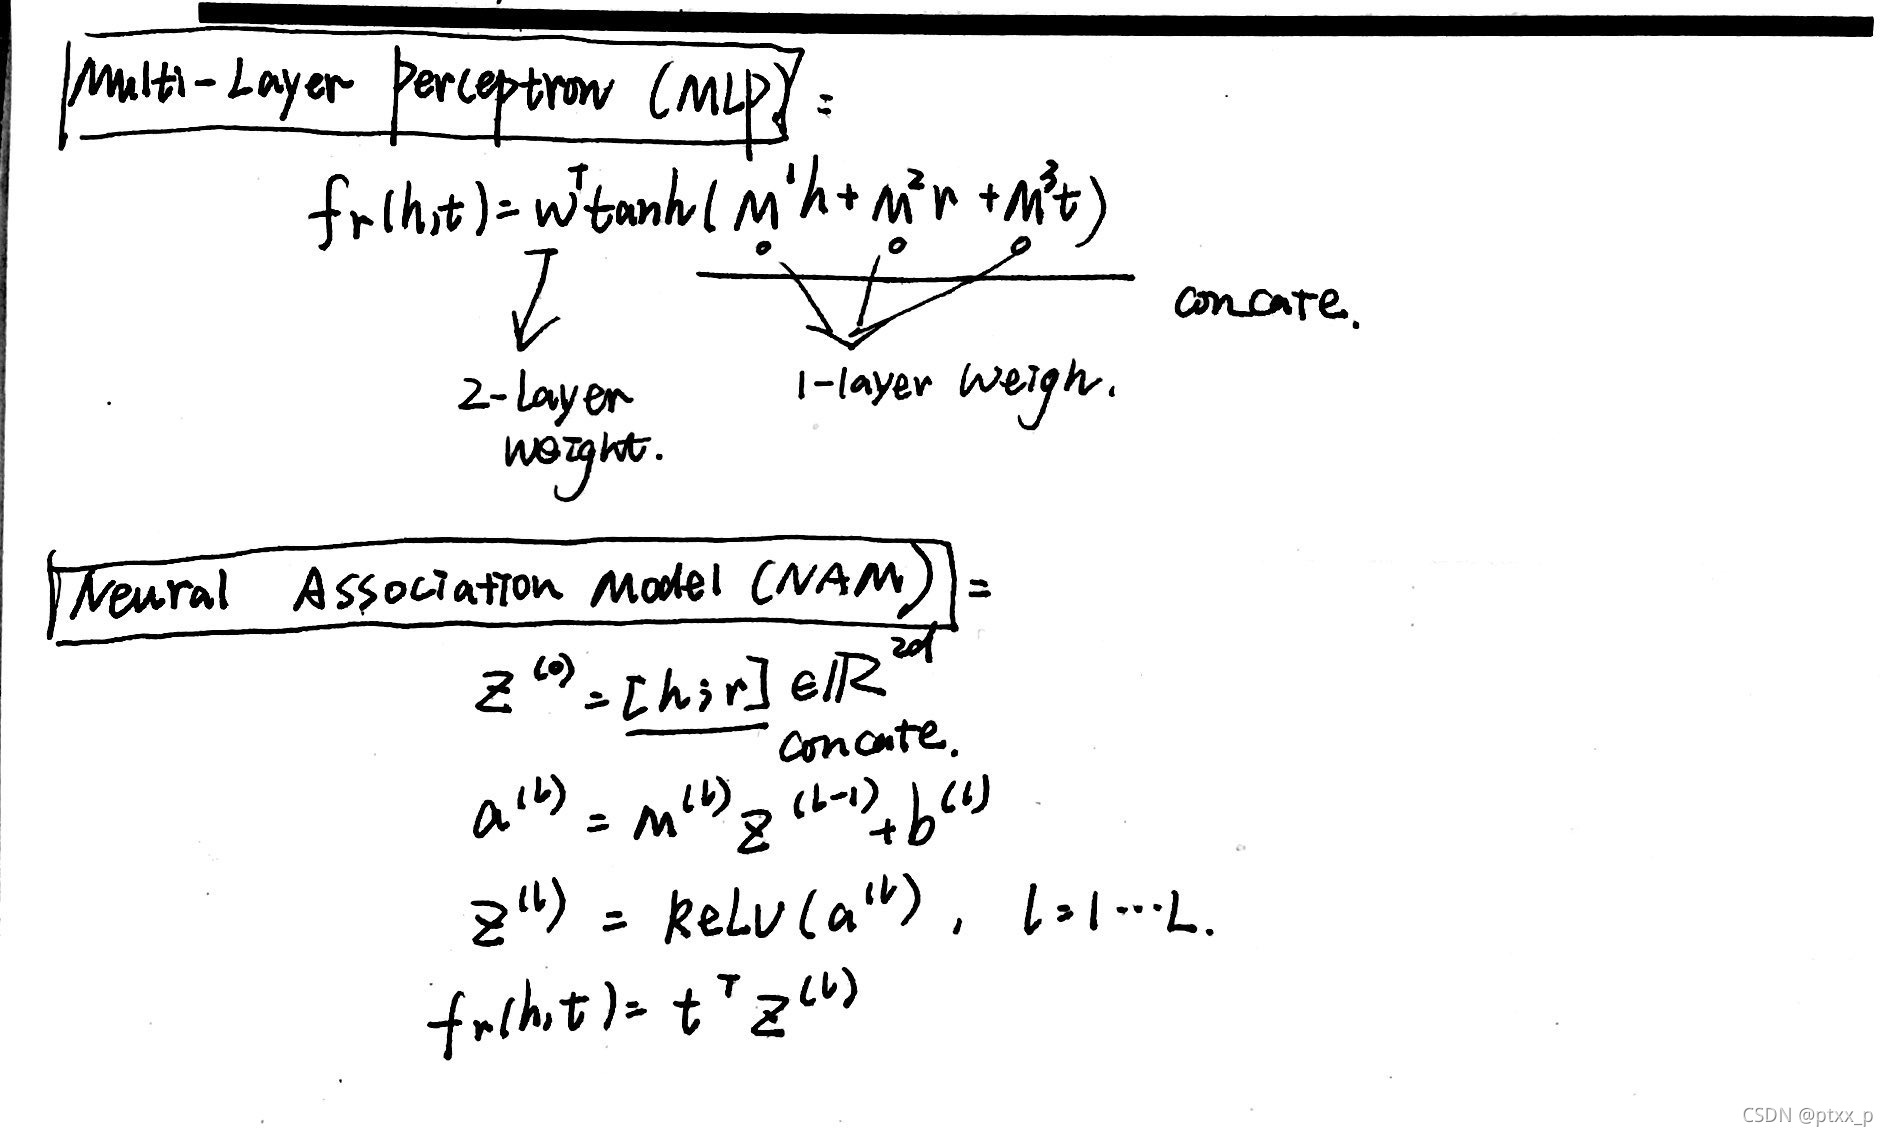 Multi-Layer Perceptron (MLP) :
fr(h,t) = wᵀtanh(M¹h + M²r + M³t)
concate.
2-Layer weight.
1-layer weigh.
Neural Association Model (NAM) =
z⁽⁰⁾ = [h;r] ∈ ℝ²ᵈ
concate.
a⁽ˡ⁾ = M⁽ˡ⁾z⁽ˡ⁻¹⁾ + b⁽ˡ⁾
z⁽ˡ⁾ = ReLU(a⁽ˡ⁾), l = 1 ··· L.
fr(h,t) = tᵀz⁽ˡ⁾
CSDN @ptxx_p